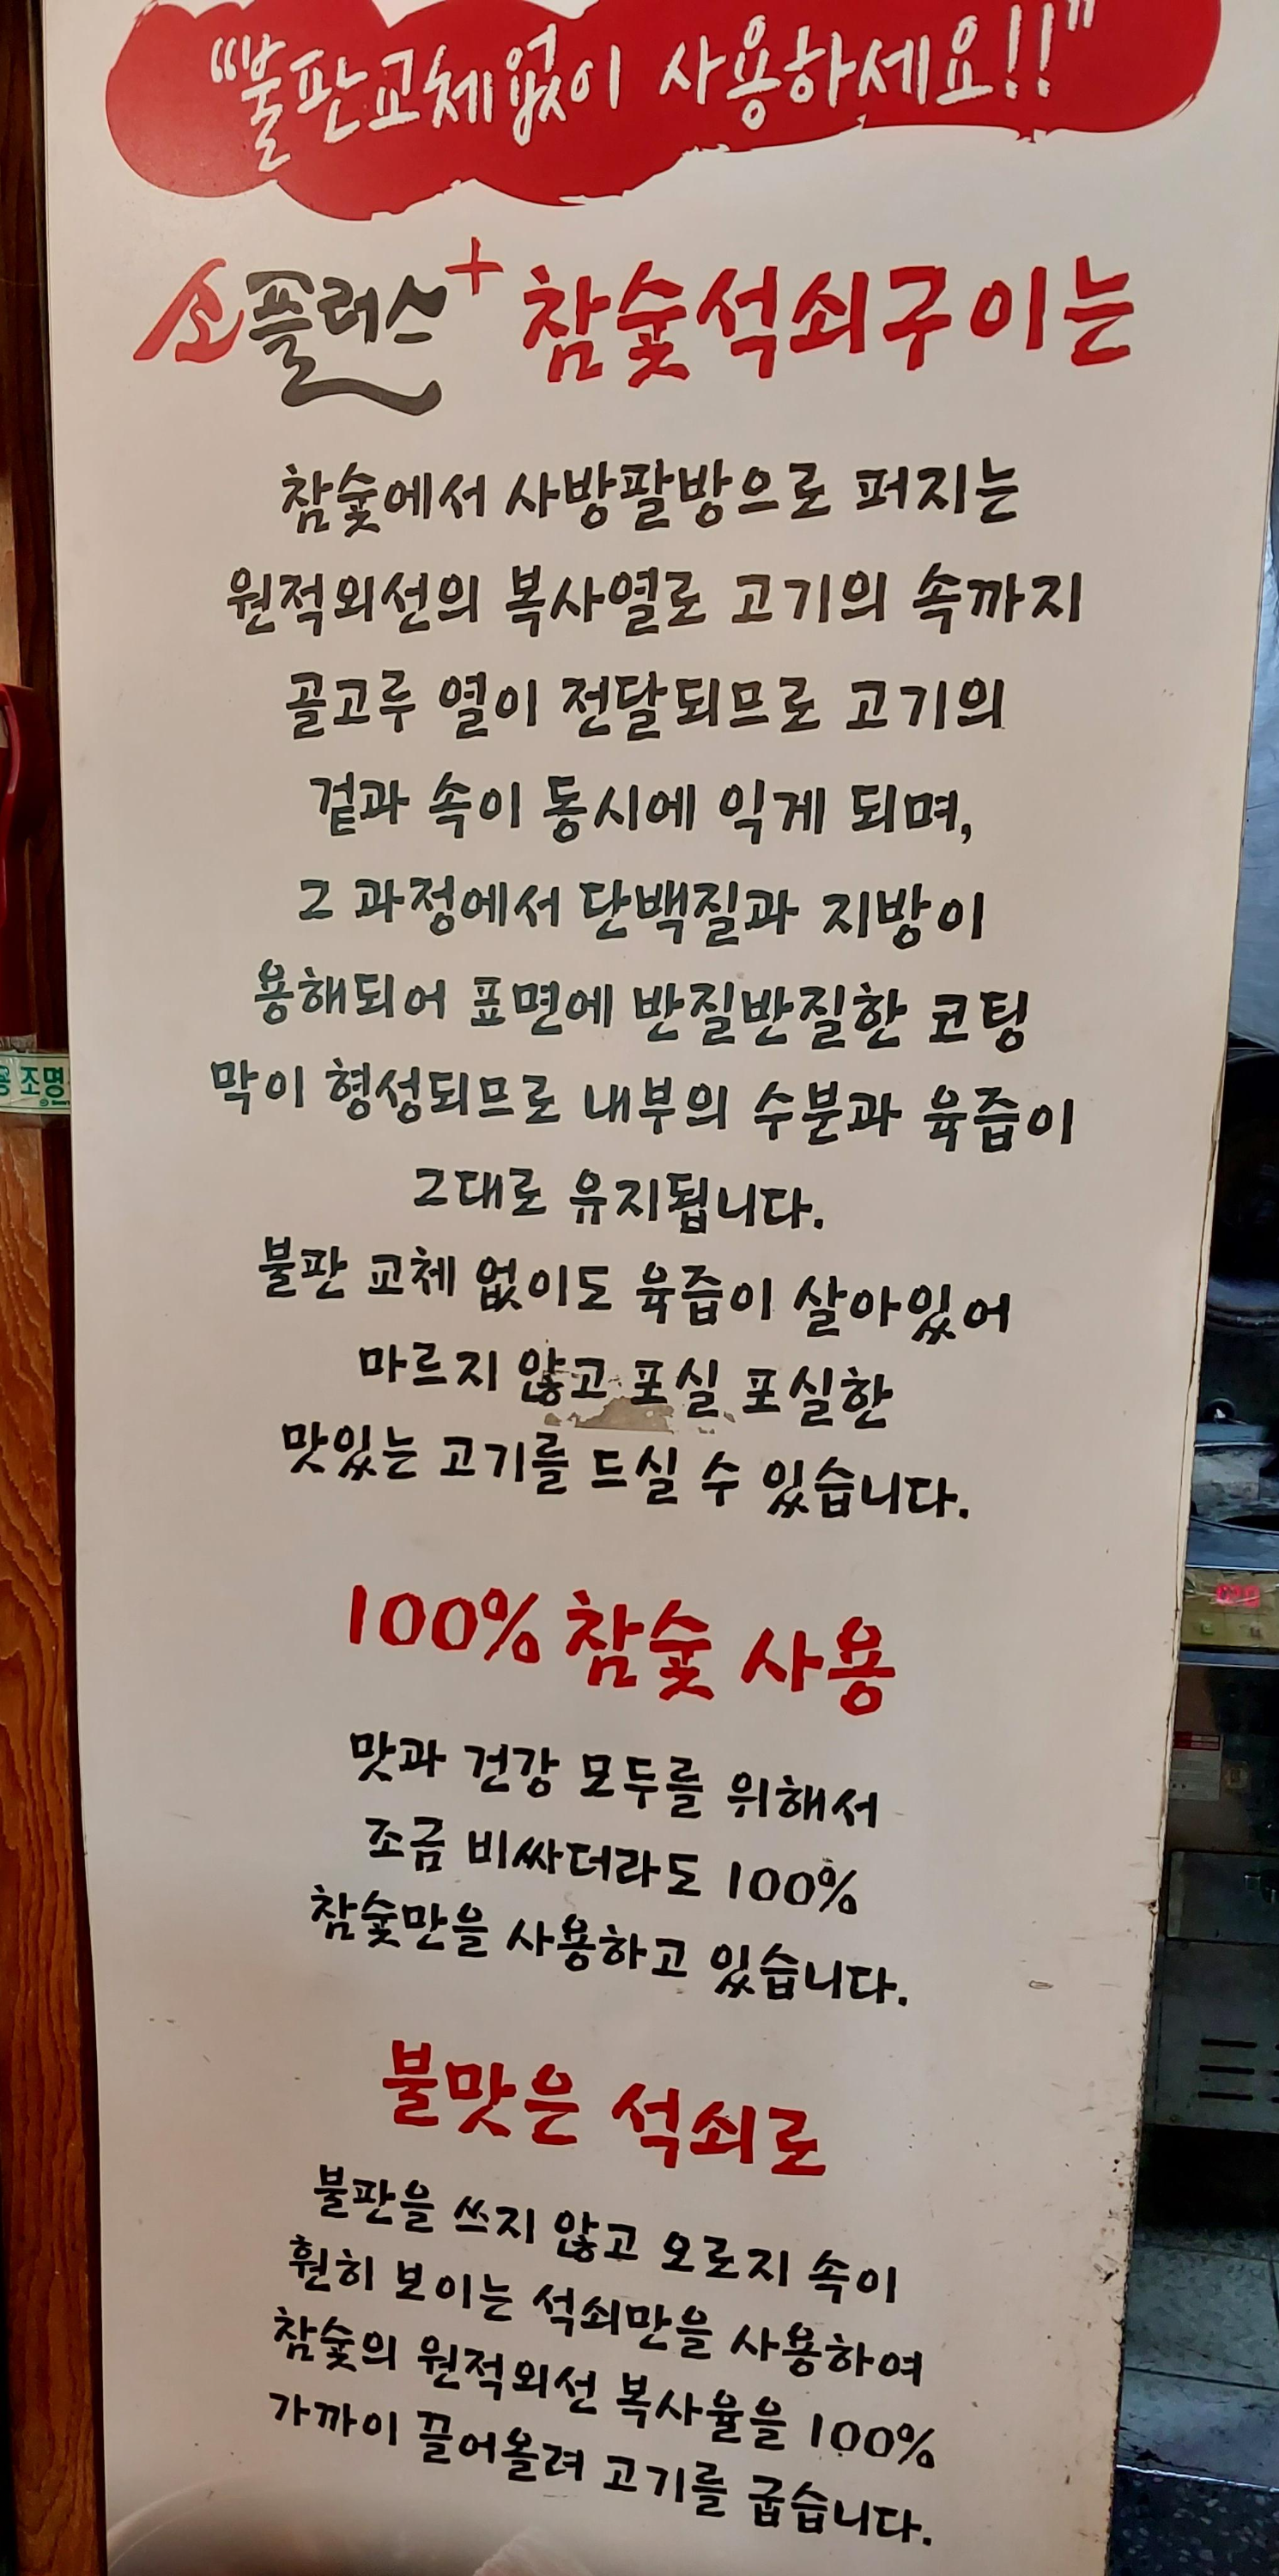 “불판교체없이 사용하세요!!”
소플러스+ 참숯석쇠구이는
참숯에서 사방팔방으로 퍼지는
원적외선의 복사열로 고기의 속까지
골고루 열이 전달되므로 고기의
겉과 속이 동시에 익게 되며,
그 과정에서 단백질과 지방이
용해되어 표면에 반질반질한 코팅
막이 형성되므로 내부의 수분과 육즙이
그대로 유지됩니다.
불판 교체 없이도 육즙이 살아있어
마르지 않고 포실 포실한
맛있는 고기를 드실 수 있습니다.
100% 참숯 사용
맛과 건강 모두를 위해서
조금 비싸더라도 100%
참숯만을 사용하고 있습니다.
불맛은 석쇠로
불판을 쓰지 않고 오로지 속이
훤히 보이는 석쇠만을 사용하여
참숯의 원적외선 복사율을 100%
가까이 끌어올려 고기를 굽습니다.
조명